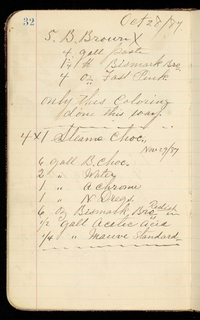 32
Oct 28/87
5. B. Brown X
4 gall Paste
1 1/4 # Bismark Bro.
4 oz Fast Pink
only this Coloring
done this way.
4 X T Steamo Choc.
Nov 17/87
6 gall B. Choc.
2 " Water
1 " a chrome
1 " N. Dregs
6 oz Bismark Bro Redish
1/2 gall Acetic Acid
1/4 " Mauve Standard